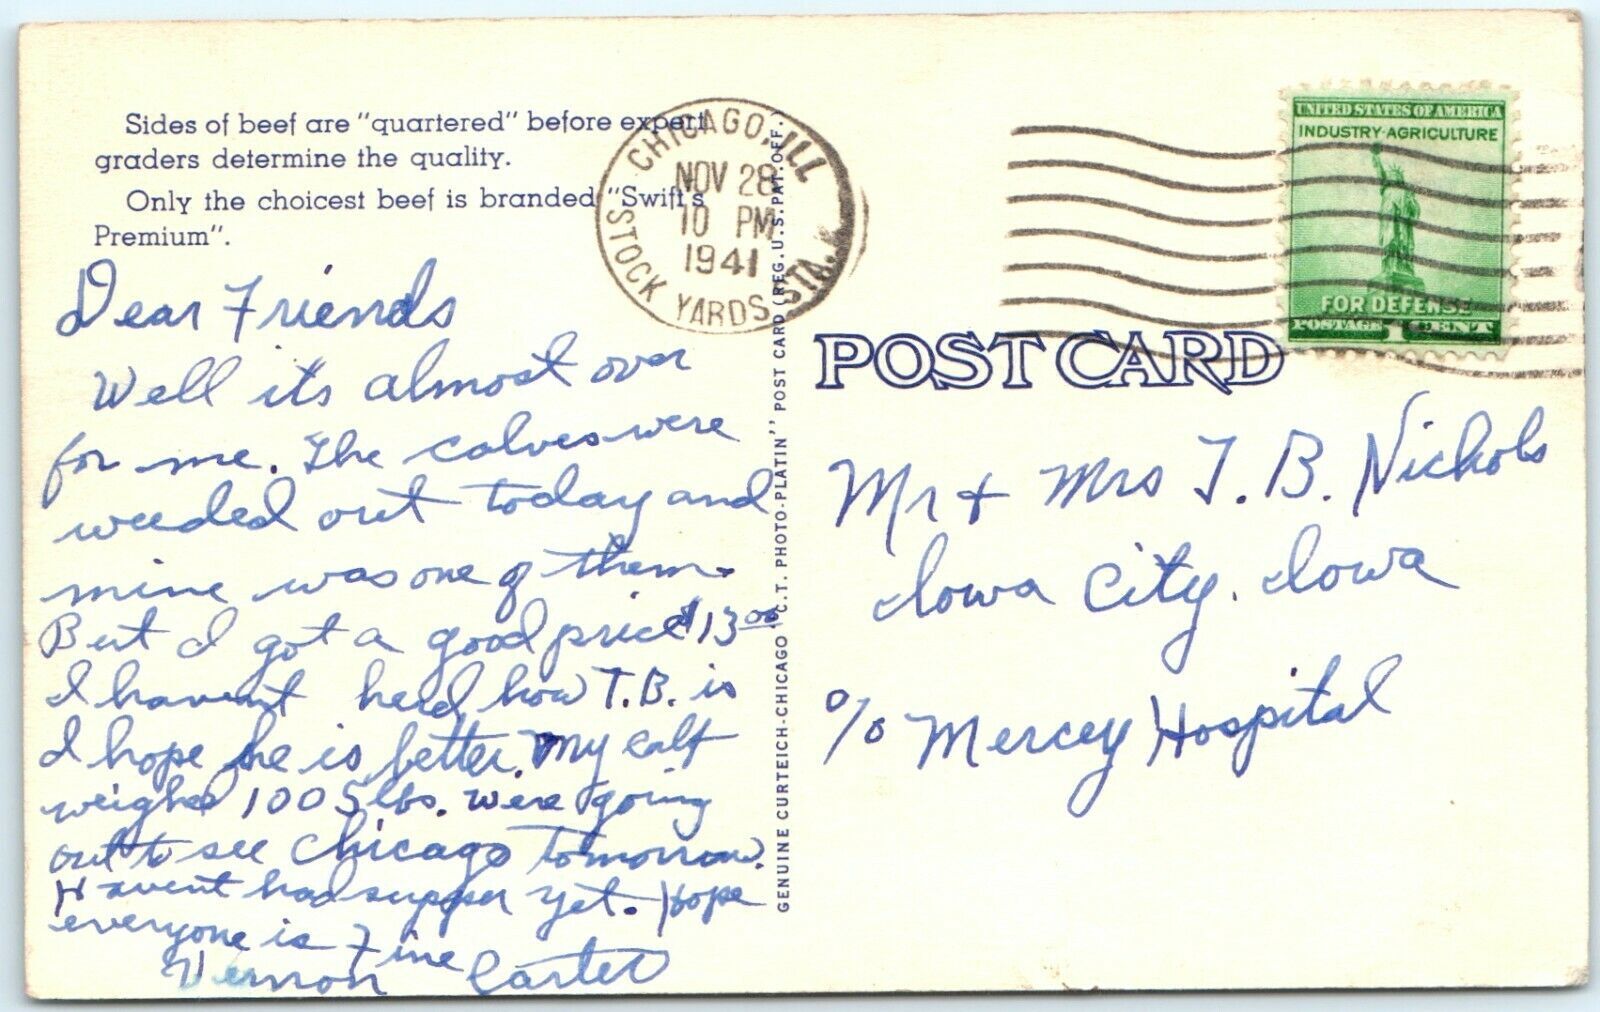 Sides of beef are "quartered" before expert
graders determine the quality.
Only the choicest beef is branded "Swift's
Premium".
Dear Friends
Well its almost over
for me. The calves were
weeded out today and
mine was one of them.
But I got a good price $13.00
I havent herd how T.B. is
I hope he is better. My calf
weighed 1005 lbs. were going
out to see Chicago Tomorrow.
Havent had supper yet. Hope
everyone is Fine
Vernon Carter
CHICAGO, ILL
NOV 28
10 PM
1941
STOCK YARDS STA.
GENUINE CURTEICH-CHICAGO "C.T. PHOTO-PLATIN" POST CARD (REG. U.S. PAT. OFF.)
UNITED STATES OF AMERICA
INDUSTRY-AGRICULTURE
FOR DEFENSE
POSTAGE 1 CENT
POST CARD
Mr + Mrs T. B. Nichols
Iowa City. Iowa
% Mercey Hospital